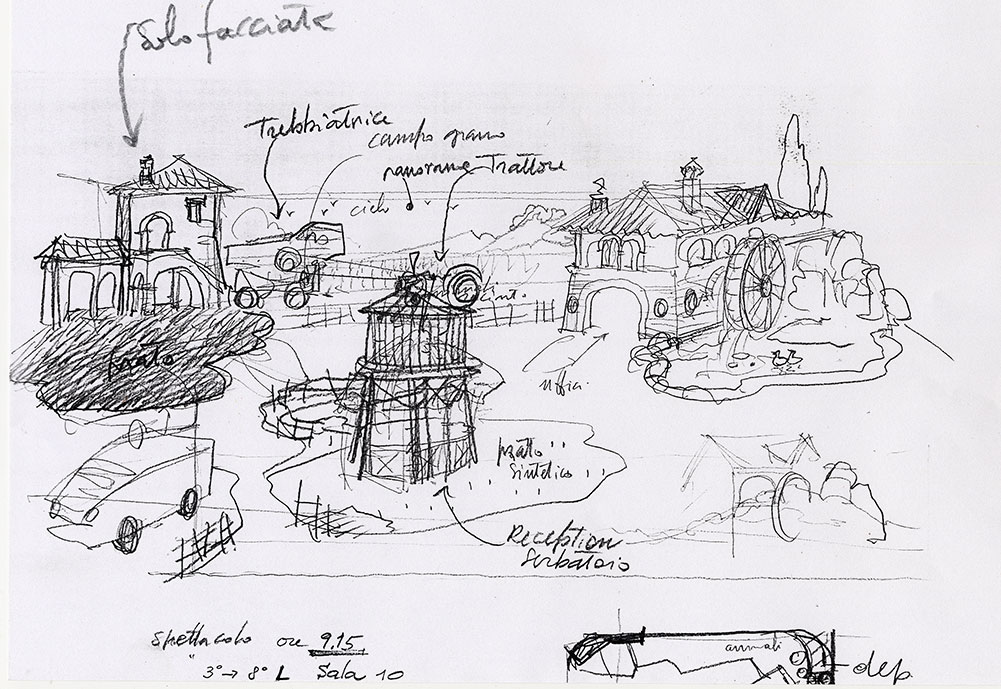 Solo facciate
Trebbiatrice
campo grano
panorama Trattore
cielo
prato
uffici.
prato
sintetico
Reception
Serbatoio
Spettacolo ore 9.15
3° → 8° L Sala 10
animali
dep.